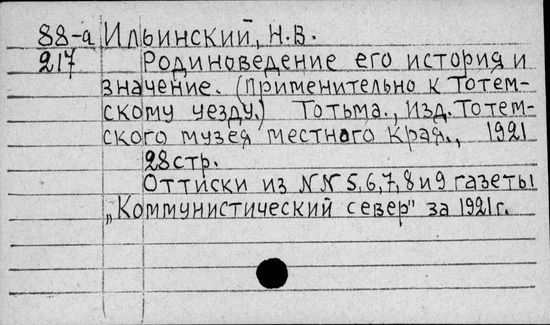 88-а Ильинский, Н.В.
217 Родиноведение его история и
значение. (применительно к Тотем-
скому уезду.) Тотьма., Изд. Тотем-
ского музея местного края., 1921
28 стр.
Оттиски из NN 5,6,7,8 и 9 газеты
„Коммунистический север" за 1921 г.